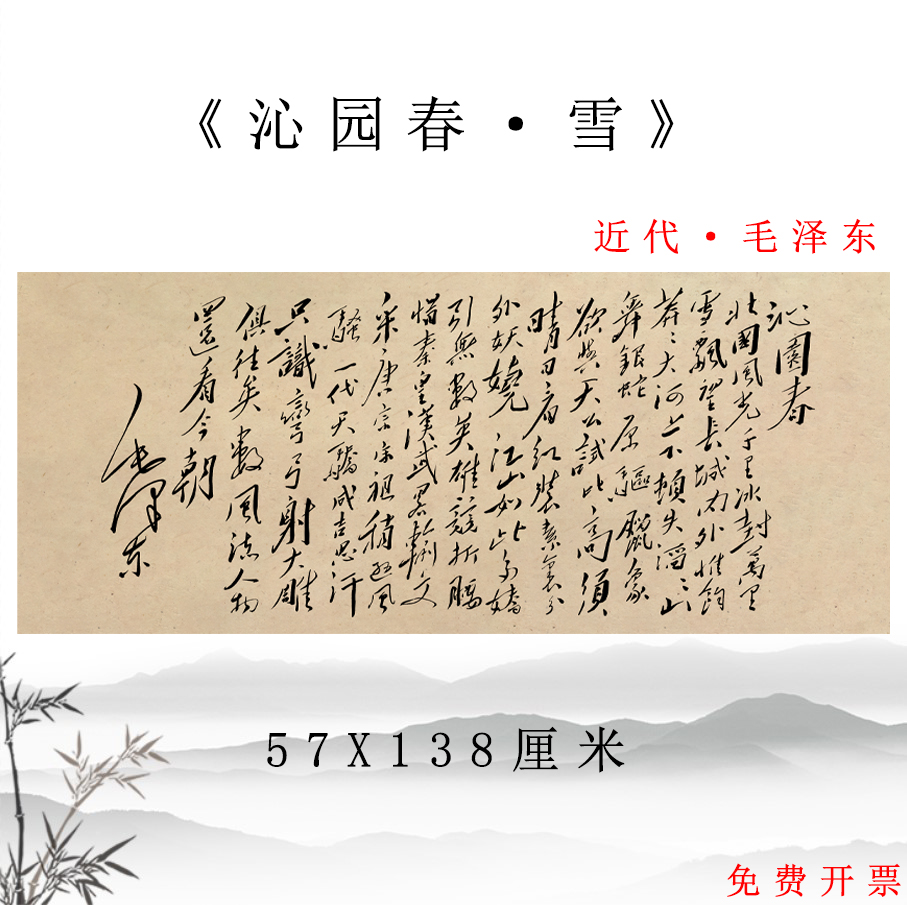 《沁园春·雪》
近代·毛泽东
沁園春
北國風光千里冰封萬里
雪飄望長城内外惟餘
莽〻大河上下頓失滔〻山
舞銀蛇原驅臘象
欲與天公試比高須
晴日看紅裝素裹分
外妖嬈江山如此多嬌
引無數英雄競折腰
惜秦皇漢武略輸文
采唐宗宋祖稍遜風
騷一代天驕成吉思汗
只識彎弓射大雕
俱往矣數風流人物
還看今朝
毛澤東
57X138厘米
免费开票